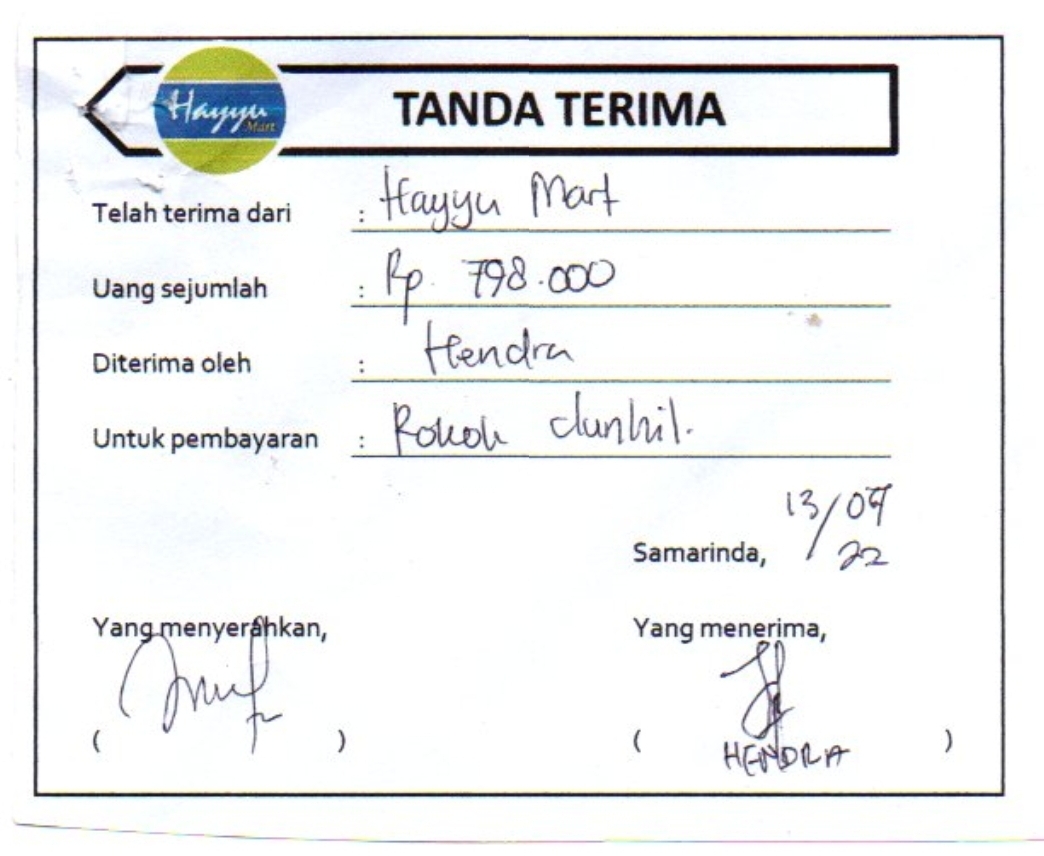 Hayyu
Mart
TANDA TERIMA
Telah terima dari : Hayyu Mart
Uang sejumlah : Rp. 798.000
Diterima oleh : Hendra
Untuk pembayaran : Rokok dunhil.
Samarinda, 13/09
22
Yang menyerahkan, Yang menerima,
( ) ( HENDRA )